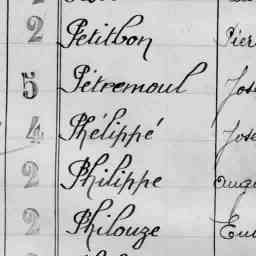 2 Petitbon Pier
5 Pétremoul Jose
4 Phélippé Jose
2 Philippe Augu
2 Philouze Eu